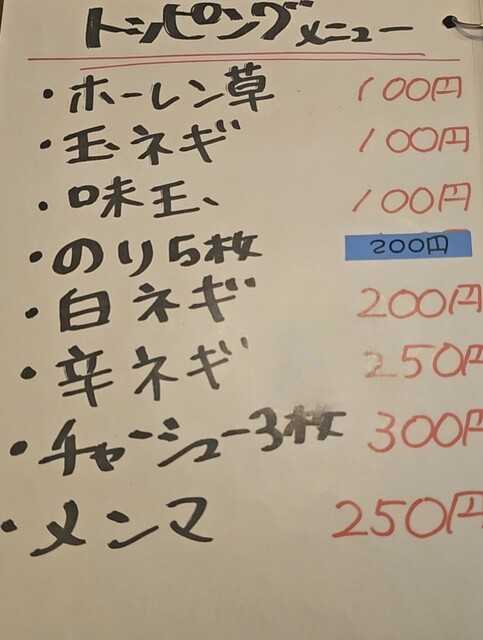 トッピングメニュー
・ホーレン草 100円
・玉ネギ 100円
・味玉、 100円
・のり5枚 200円
・白ネギ 200円
・辛ネギ 250円
・チャーシュー3枚 300円
・メンマ 250円